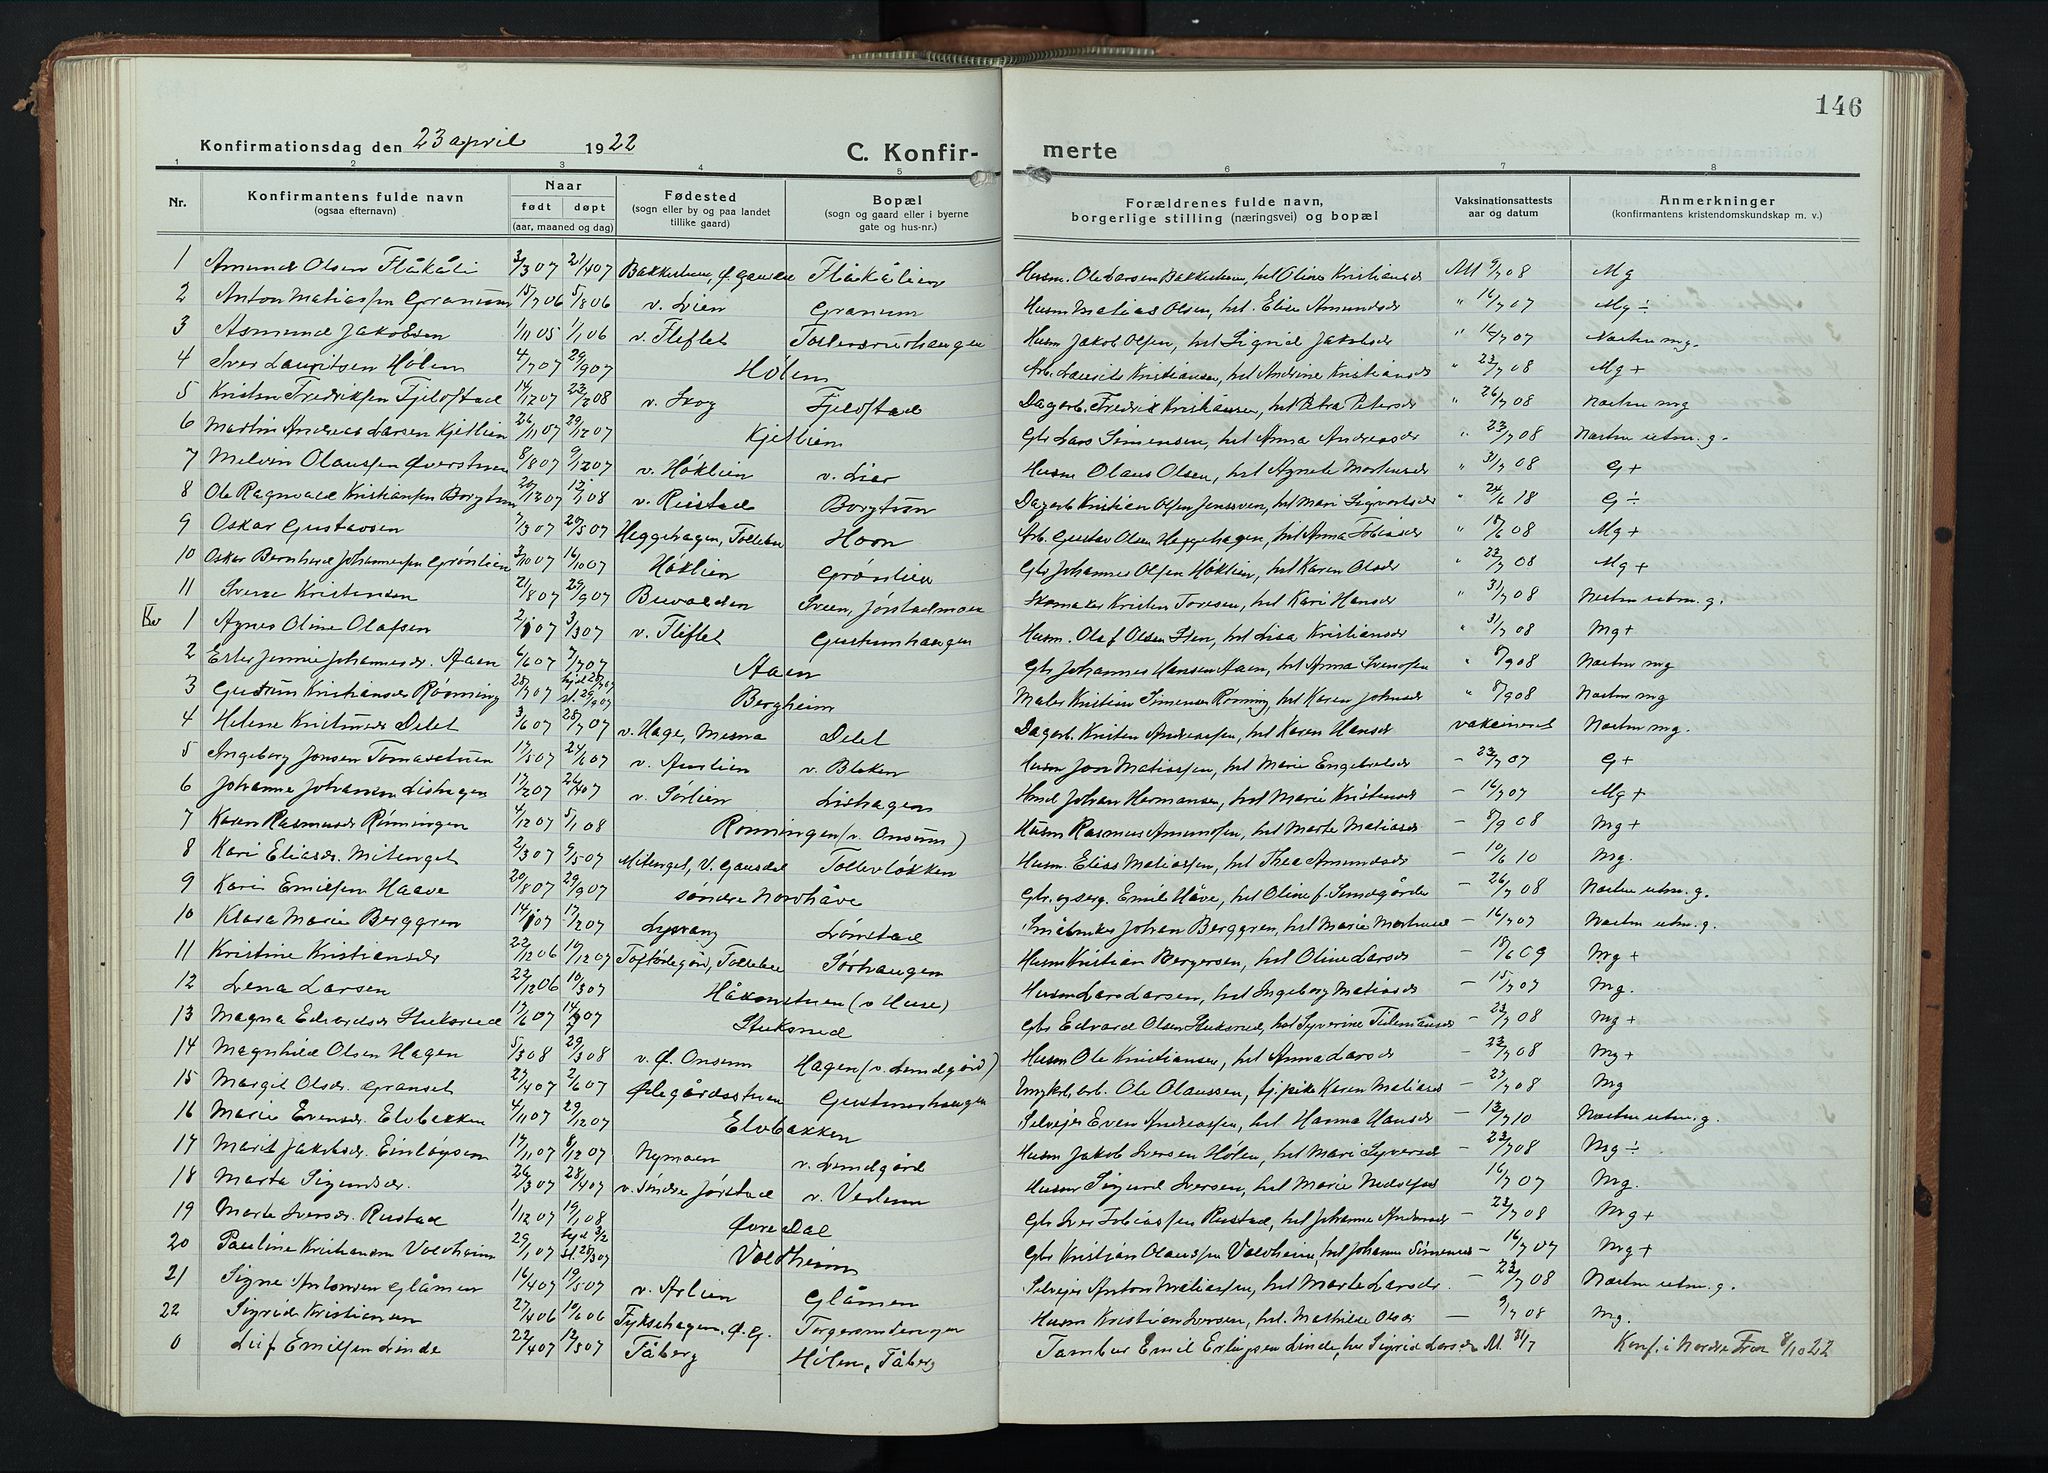 146
Konfirmationsdag den 23 april 1922
C. Konfir-merte
1 2 3 4 5 6 7 8
Nr. Konfirmantens fulde navn (ogsaa efternavn) Naar født døpt (aar, maaned og dag) Fødested (sogn eller by og paa landet tillike gaard) Bopæl (sogn og gaard eller i byerne gate og hus-nr.) Forældrenes fulde navn, borgerlige stilling (næringsvei) og bopæl Vaksinationsattests aar og datum Anmerkninger (konfirmantens kristendomskundskap m. v.)
1 Amund Olsen Flåkåli 3/3 07 21/4 07 Flåkålien Husm. Ole Larsen Bakkestuen, hst Oline Kristiansdr M 9/7 08 Mg
2 Anton Matiassen Granum 15/7 06 5/8 06 v. Lien Granum Husm Matias Olsen, hst. Elise Amundsdr " 16/7 07 Mg ÷
3 Asmund Jakobsen 1/11 05 1/1 06 v. Fliflet Husm Jakob Olsen, hst Sigrid Jakobsdr " 16/7 07 Næsten mg.
4 Iver Lauritsen Hølen 4/7 07 29/9 07 Hølen Arb. Laurits Kristiansen, hst Andrine Kristiansdr " 23/7 08 Mg +
5 Kristen Fredriksen Fjeldstad 14/12 07 23/2 08 v. Skog Fjeldstad Dagarb. Fredrik Kristiansen, hst Petra Petersdr " 26/7 08 Næsten mg
6 Martin Andreas Larsen Kjetlien 26/11 07 29/12 07 Kjetlien Gbr Lars Simensen, hst Anna Andreasdr " 23/7 08 Næsten utm. g.
7 Melvin Olaussen Øverstuen 8/8 07 9/12 07 v. Høklien v. Lier Husm Olaus Olsen, hst Agnete Martinsdr " 31/7 08 G +
8 Ole Ragnvald Kristiansen Borgtun 20/12 07 12/1 08 v. Rustad Borgtun Dagarb Kristian Olsen Jensveen, hst Mari Sigvartsdr " 24/6 18 G ÷
9 Oskar Gustavsen 7/3 07 20/5 07 Heggehagen, Follebu Hoon Arb. Gustav Olsen Heggehagen, hst Anna Tobiasdr " 18/6 08 Mg +
10 Oskar Bernhard Johannessen Grønlien 3/10 07 16/10 07 Høklien Grønlien Gbr Johannes Olsen Høklien, hst Karen Olsdr " 23/7 08 Mg +
11 Sverre Kristensen 21/8 07 29/9 07 Sveen, Jørstadmoen Skomaker Kristen Toresen, hst Kari Hansdr " 31/7 08 Næsten utm. g.
Kv 1 Agnes Oline Olafsen 2/1 07 3/3 07 v. Fliflet Husm. Olaf Olsen Sten, hst Lisa Kristiansdr " 31/7 08 Mg +
2 Ester Jennie Johannesdr. Aaen 6/6 07 7/7 07 Aaen Gbr Johannes Hansen Aaen, hst Anna Svendsen " 8/9 08 Næsten mg
3 Gudrun Kristiansdr Rønning 28/7 07 hjd 28/7 07 st. 29/9 07 Bergheim Maler Kristian Simensen Rønning, hst Karen Johnsdr " 8/9 08 Næsten mg
4 Helene Kristensdr Delet 3/6 07 28/7 07 v. Hage, Mesna Delet Dagarb. Kristen Andreassen, hst Karen Hansdr vaksineret Næsten mg.
5 Ingeborg Jonsen Tomasstuen 17/5 07 24/6 07 v. Aulien v. Bleken Husm Jon Matiassen, hst Marie Engebretsdr - 23/7 07 G +
6 Johanne Johansen Lishagen 17/2 07 26/4 07 v. Sørlien Lishagen Hmd Johan Hermansen, hst Marie Kristensdr - 16/7 07 Mg +
7 Karen Rasmusdr Rønningen 4/12 07 5/1 08 Rønningen (v. Onsum) Husm Rasmus Amundsen, hst Marte Matiasdr - 8/9 08 Mg +
8 Kari Eliasdr. Mitenget 2/3 07 9/5 07 Mitenget, V. Gausdal Tollevløkken Husm. Elias Matiassen, hst Thea Amundsdr - 10/6 10 Mg.
9 Kari Emilsen Haave 20/8 07 29/9 07 søndre Nordhåve Gbr. og serg. Emil Håve, hst Oline f. Sundgårde - 26/7 08 Næsten utm. g.
10 Klara Marie Berggren 14/1 07 17/2 07 Lysvang Lønstad Småbruker Johan Berggren, hst Marie Martinsd - 16/7 07 Næsten utm. g.
11 Kristine Kristiansdr 22/12 06 19/12 07 Sørhaugen Husm Kristian Bergersen, hst Oline Larsdr - 18/6 09 Mg +
12 Lena Larsen 22/12 06 10/3 07 Håkonstuen (v Huse) Husm Lars Larsen, hst Ingeborg Matiasdr - 15/7 07 Mg.
13 Magna Edvardsdr Stuksrud 17/6 07 14/7 07 Stuksrud Gbr Edvard Olsen Stuksrud, hst Syverine Tidemansdr - 23/7 08 Mg +
14 Magnhild Olsen Hagen 5/3 08 29/3 08 v. Ø. Onsum Hagen (v. Lundgård) Husm Ole Kristiansen, hst Anna Larsdr - 23/7 08 Mg +
15 Margit Olsdr. Granset 27/4 07 2/6 07 Ølegårdsstuen Ole Olaussen, tj. pike Karen Matiasd - 23/7 08 Mg
16 Marie Evensdr. Elvbakken 4/11 07 29/12 07 Elvbakken Selveier Even Andreassen, hst Hanna Hansdr - 13/7 10 Næsten utm. g.
17 Marit Jakobsdr. Einløysen 17/11 07 8/12 07 Nymoen v. Lundgård Husm Jakob Iversen Hølen, hst Mari Syversd - 23/7 08 Mg ÷
18 Marta Sigurdsdr. 26/3 07 28/4 07 v. Søndre Jørstad Husm Sigurd Iversen, hst Marie - 16/7 07 Mg.
19 Marte Iversdr. Rustad 1/12 07 19/1 08 Øvre Dal Gbr Iver Tobiassen Rustad, hst Johanne Andersdr - 23/7 08 Mg +
20 Pauline Kristiansen Voldheim 29/1 07 hjd 3/2 st. 28/3 07 Voldheim Gbr Kristian Olaussen Voldheim, hst Johanne Simensd - 16/7 07 Mg +
21 Signe Antonsen Glåmen 16/4 07 19/5 07 v. Aulien Glåmen Selveier Anton Matiassen, hst Marte Larsdr - 23/7 08 Næsten utm. g.
22 Sigrid Kristiansen 27/4 06 10/6 06 Husm Kristian Iversen, hst. Mathilde Olsdr - 9/7 08 Mg.
0 Leif Emilsen Linde 22/4 07 12/5 07 Fåberg Hølen, Fåberg Tambur Emil Erlingsen Linde, hst Sigrid Larsdr M. 31/7 Konf. i Nordre Fron 8/10 22